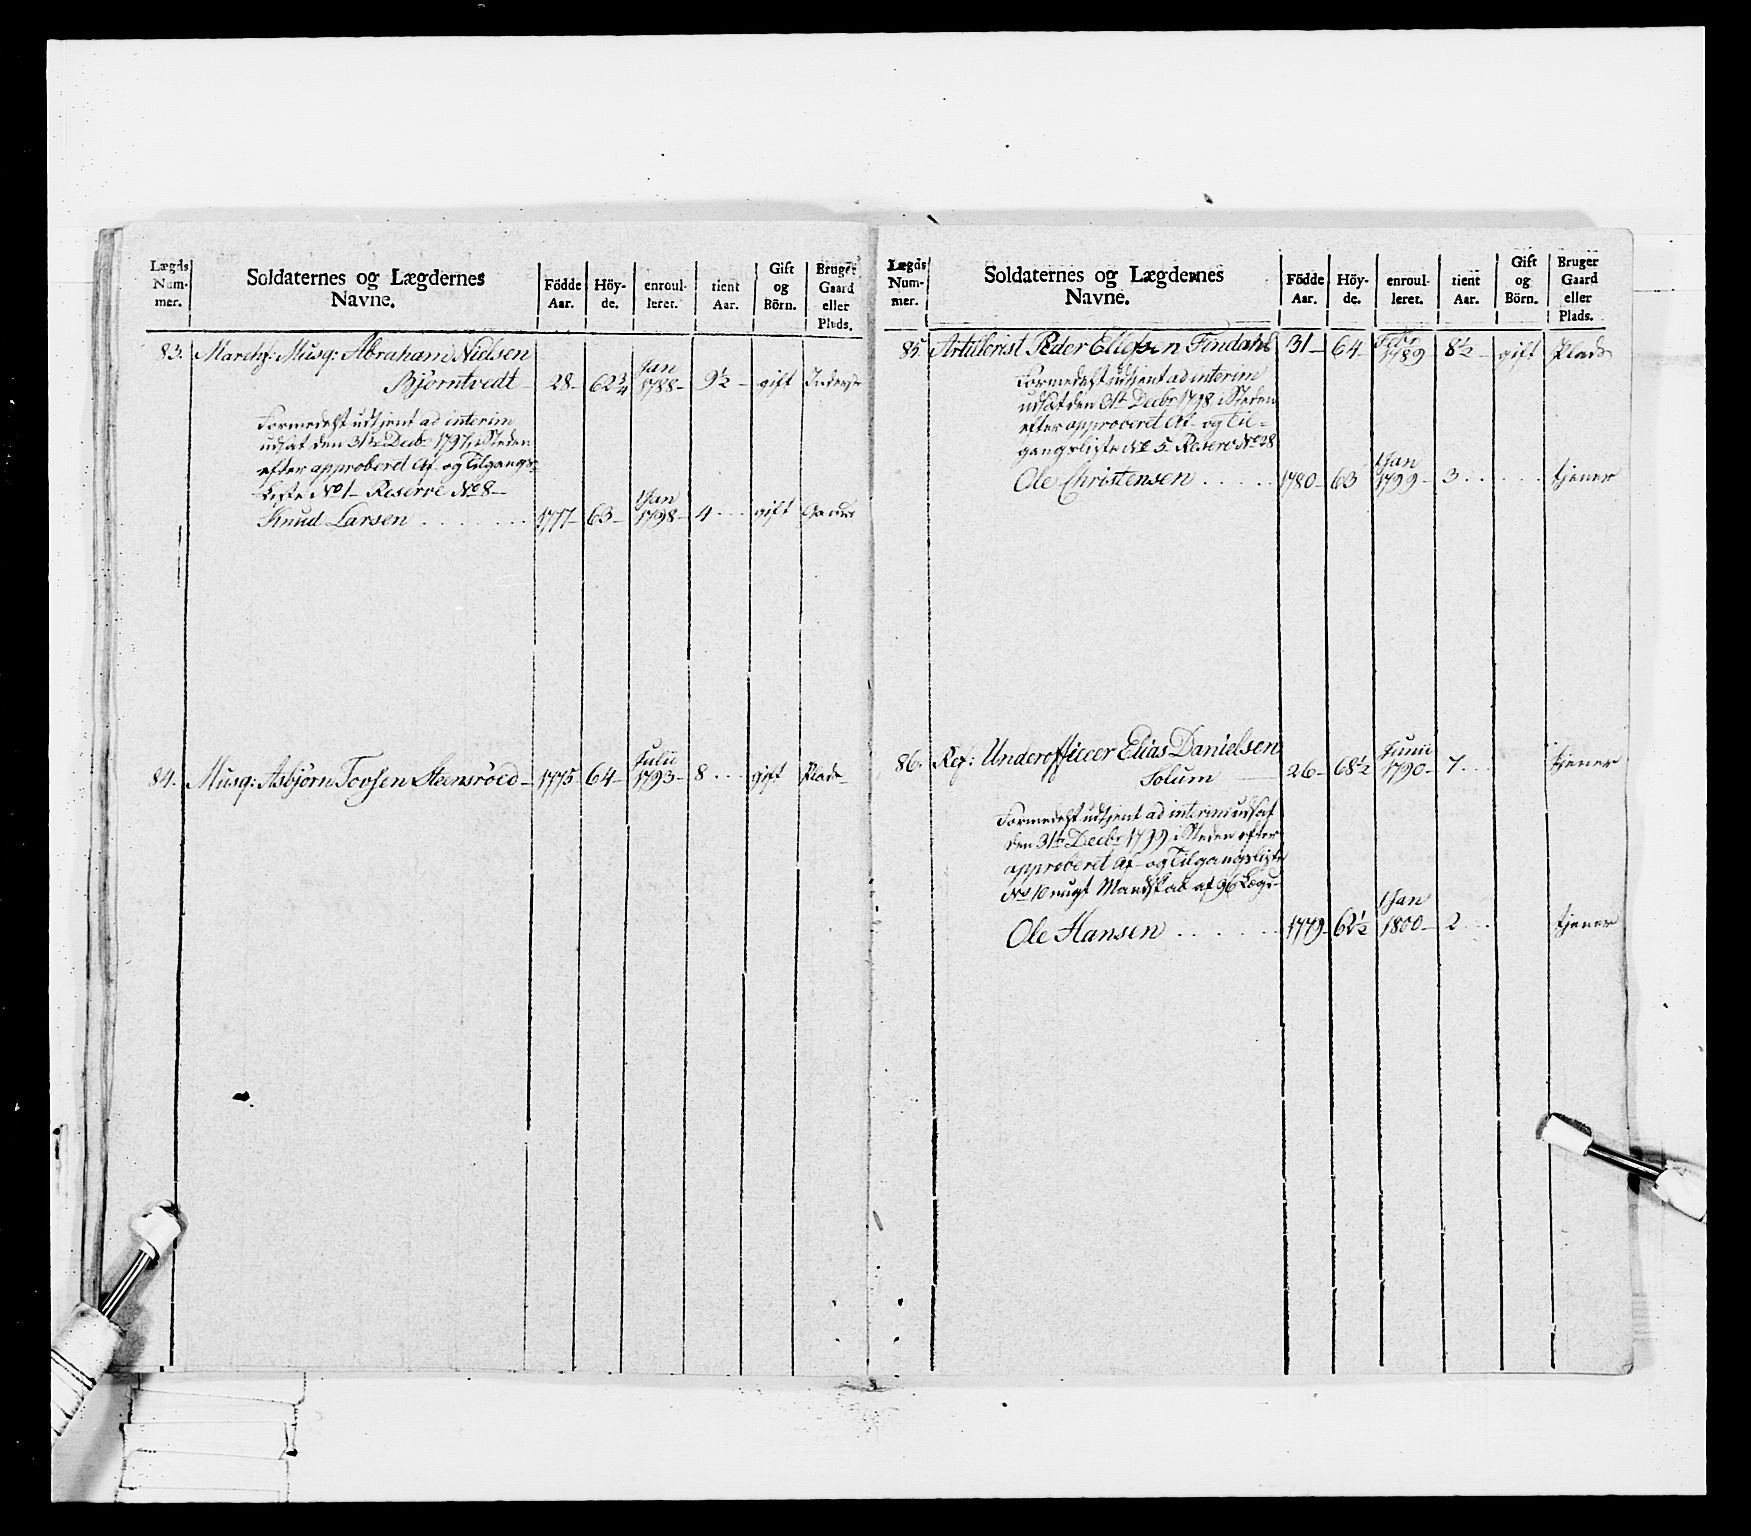 Lægds Num- mer.
Soldaternes og Lægdernes Navne.
Födde Aar.
Höy- de.
enroul- leret.
tient Aar.
Gift og Börn.
Bruger Gaard eller Plads.
83. Marchf: Musq: Abraham Nielsen
Bjørntvedt 28 62¾ Jan 1788 9½ gift Inderst
Formedelst udtjent ad interim
udsat den 31te Decbr 1797, i Steden
efter approberet Af- og Tilgangs-
Liste No 1 Reserve No 8
Knud Larsen 1777 63 1 Jan 1798 4 gift Gaard
84. Musq: Asbjörn Steensröed 1775 64 Julii 1793 8 gift Plads
Lægds Num- mer.
Soldaternes og Lægdernes Navne.
Födde Aar.
Höy- de.
enroul- leret.
tient Aar.
Gift og Börn.
Bruger Gaard eller Plads.
85. Artillerist Peder Ellefsen Findahl 31 64 Febr 1789 8½ gift Plads
Formedelst udtjent ad interim
udsat den 31te Decbr 1798 i Steden
efter approberet Af- og Til-
gangsliste No 5 Reserv No 28
Ole Christensen 1780 63 1 Jan 1799 3 tjener
86. Underofficeer Elias Danielsen
Solum 26 68½ Junii 1790 7 tjener
Formedelst udtjent ad interim udsat
den 31te Decbr 1799 i Steden efter
approberet Af- og Tilgangsliste
No 10 ungt Mandskab af 96 Lægd
Ole Hansen 1779 62½ 1 Jan 1800 2 tjener